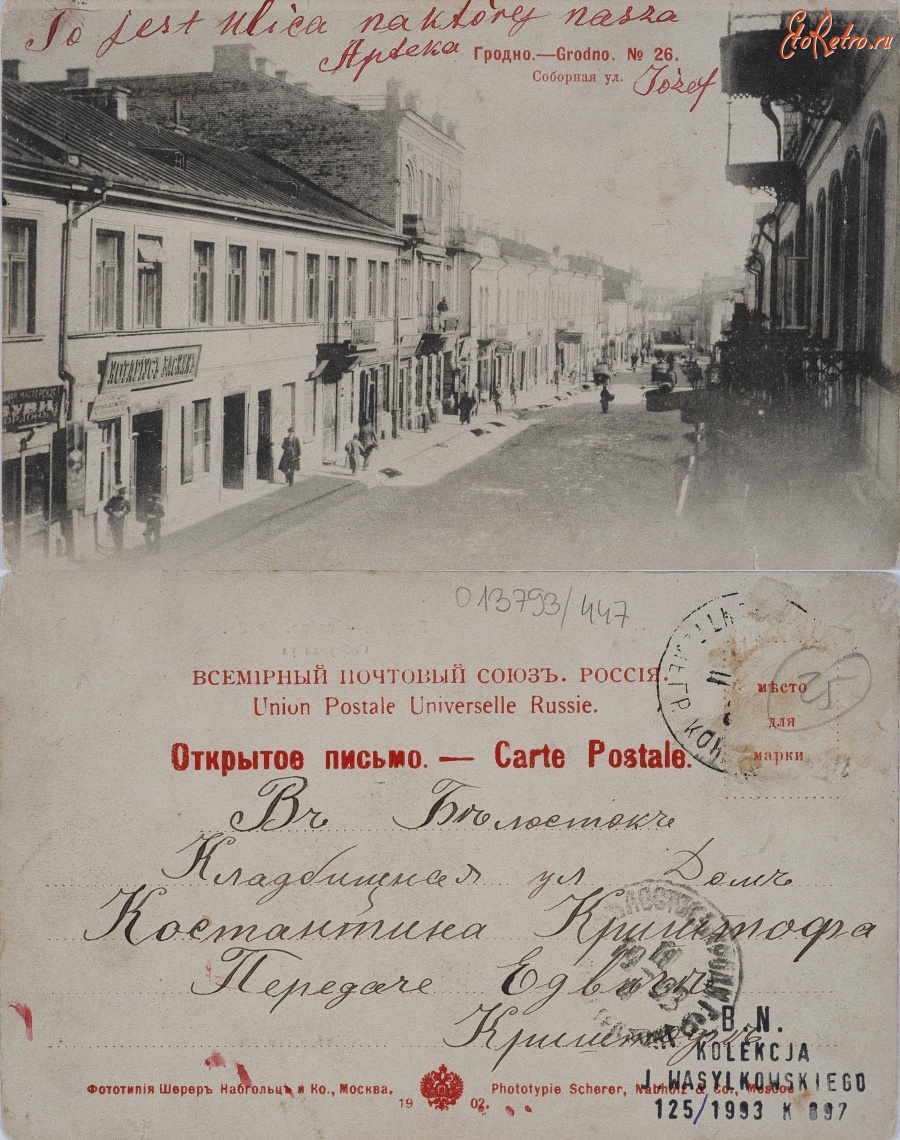 To jest ulica na której nasza
Apteka
Józef
EtoRetro.ru
Гродно.—Grodno. № 26.
Соборная ул.
НОТАРІУСЪ
МАСТЕРСКАЯ
013793/447
ВСЕМІРНЫЙ ПОЧТОВЫЙ СОЮЗЪ. РОССІЯ.
Union Postale Universelle Russie.
25
мѣсто
для
марки
Открытое письмо. — Carte Postale.
Въ Бѣлостокъ
Кладбищная ул Домъ
Костантина Криштофа
Передаче Едвигъ
B.N.
KOLEKCJA
J. WASYLKOWSKIEGO
125/1993 K 897
Фототипія Шереръ Набгольцъ и Ко., Москва.
Phototypie Scherer, Nabholz & Co., Moscou
19 02.